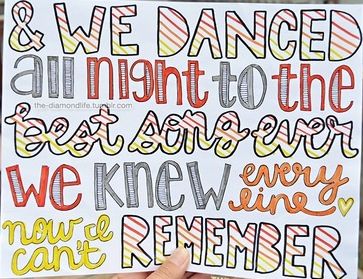 & WE DANCED
all night to the
the-diamondlife.tumblr.com
best song ever
we knew every
line
now I
can't REMEMBER